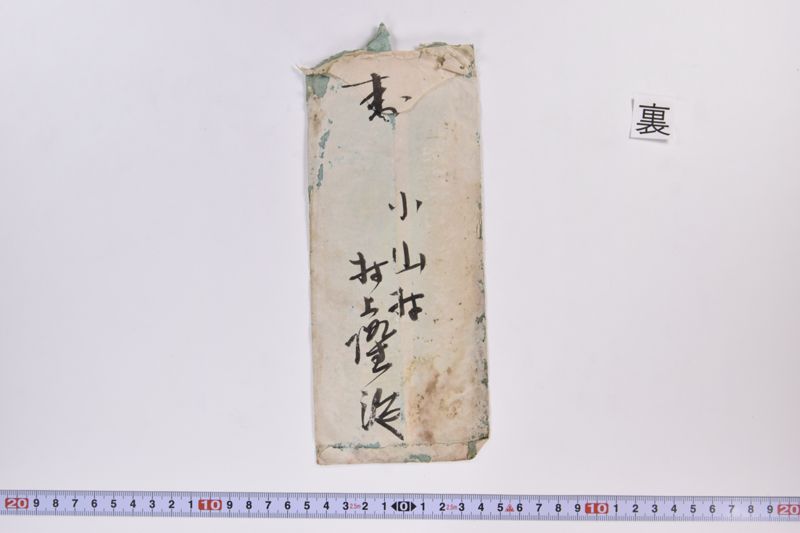 裏
小山村
村上隆治
20 9 8 7 6 5 4 3 2 1 10 9 8 7 6 5 4 3 2.5m 2 1 0 1 2 2.5m 3 4 5 6 7 8 9 10 1 2 3 4 5 6 7 8 9 20